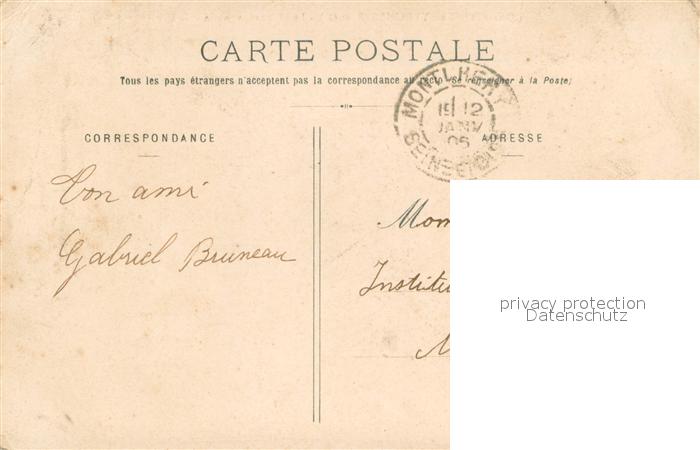 CARTE POSTALE
Tous les pays étrangers n'acceptent pas la correspondance au recto (Se renseigner à la Poste)
MONTLHERY
19 12
JANV
05
SEINE-ET-OISE
CORRESPONDANCE
ADRESSE
Ton ami
Gabriel Bruneau
Mon
Institu
M
privacy protection
Datenschutz